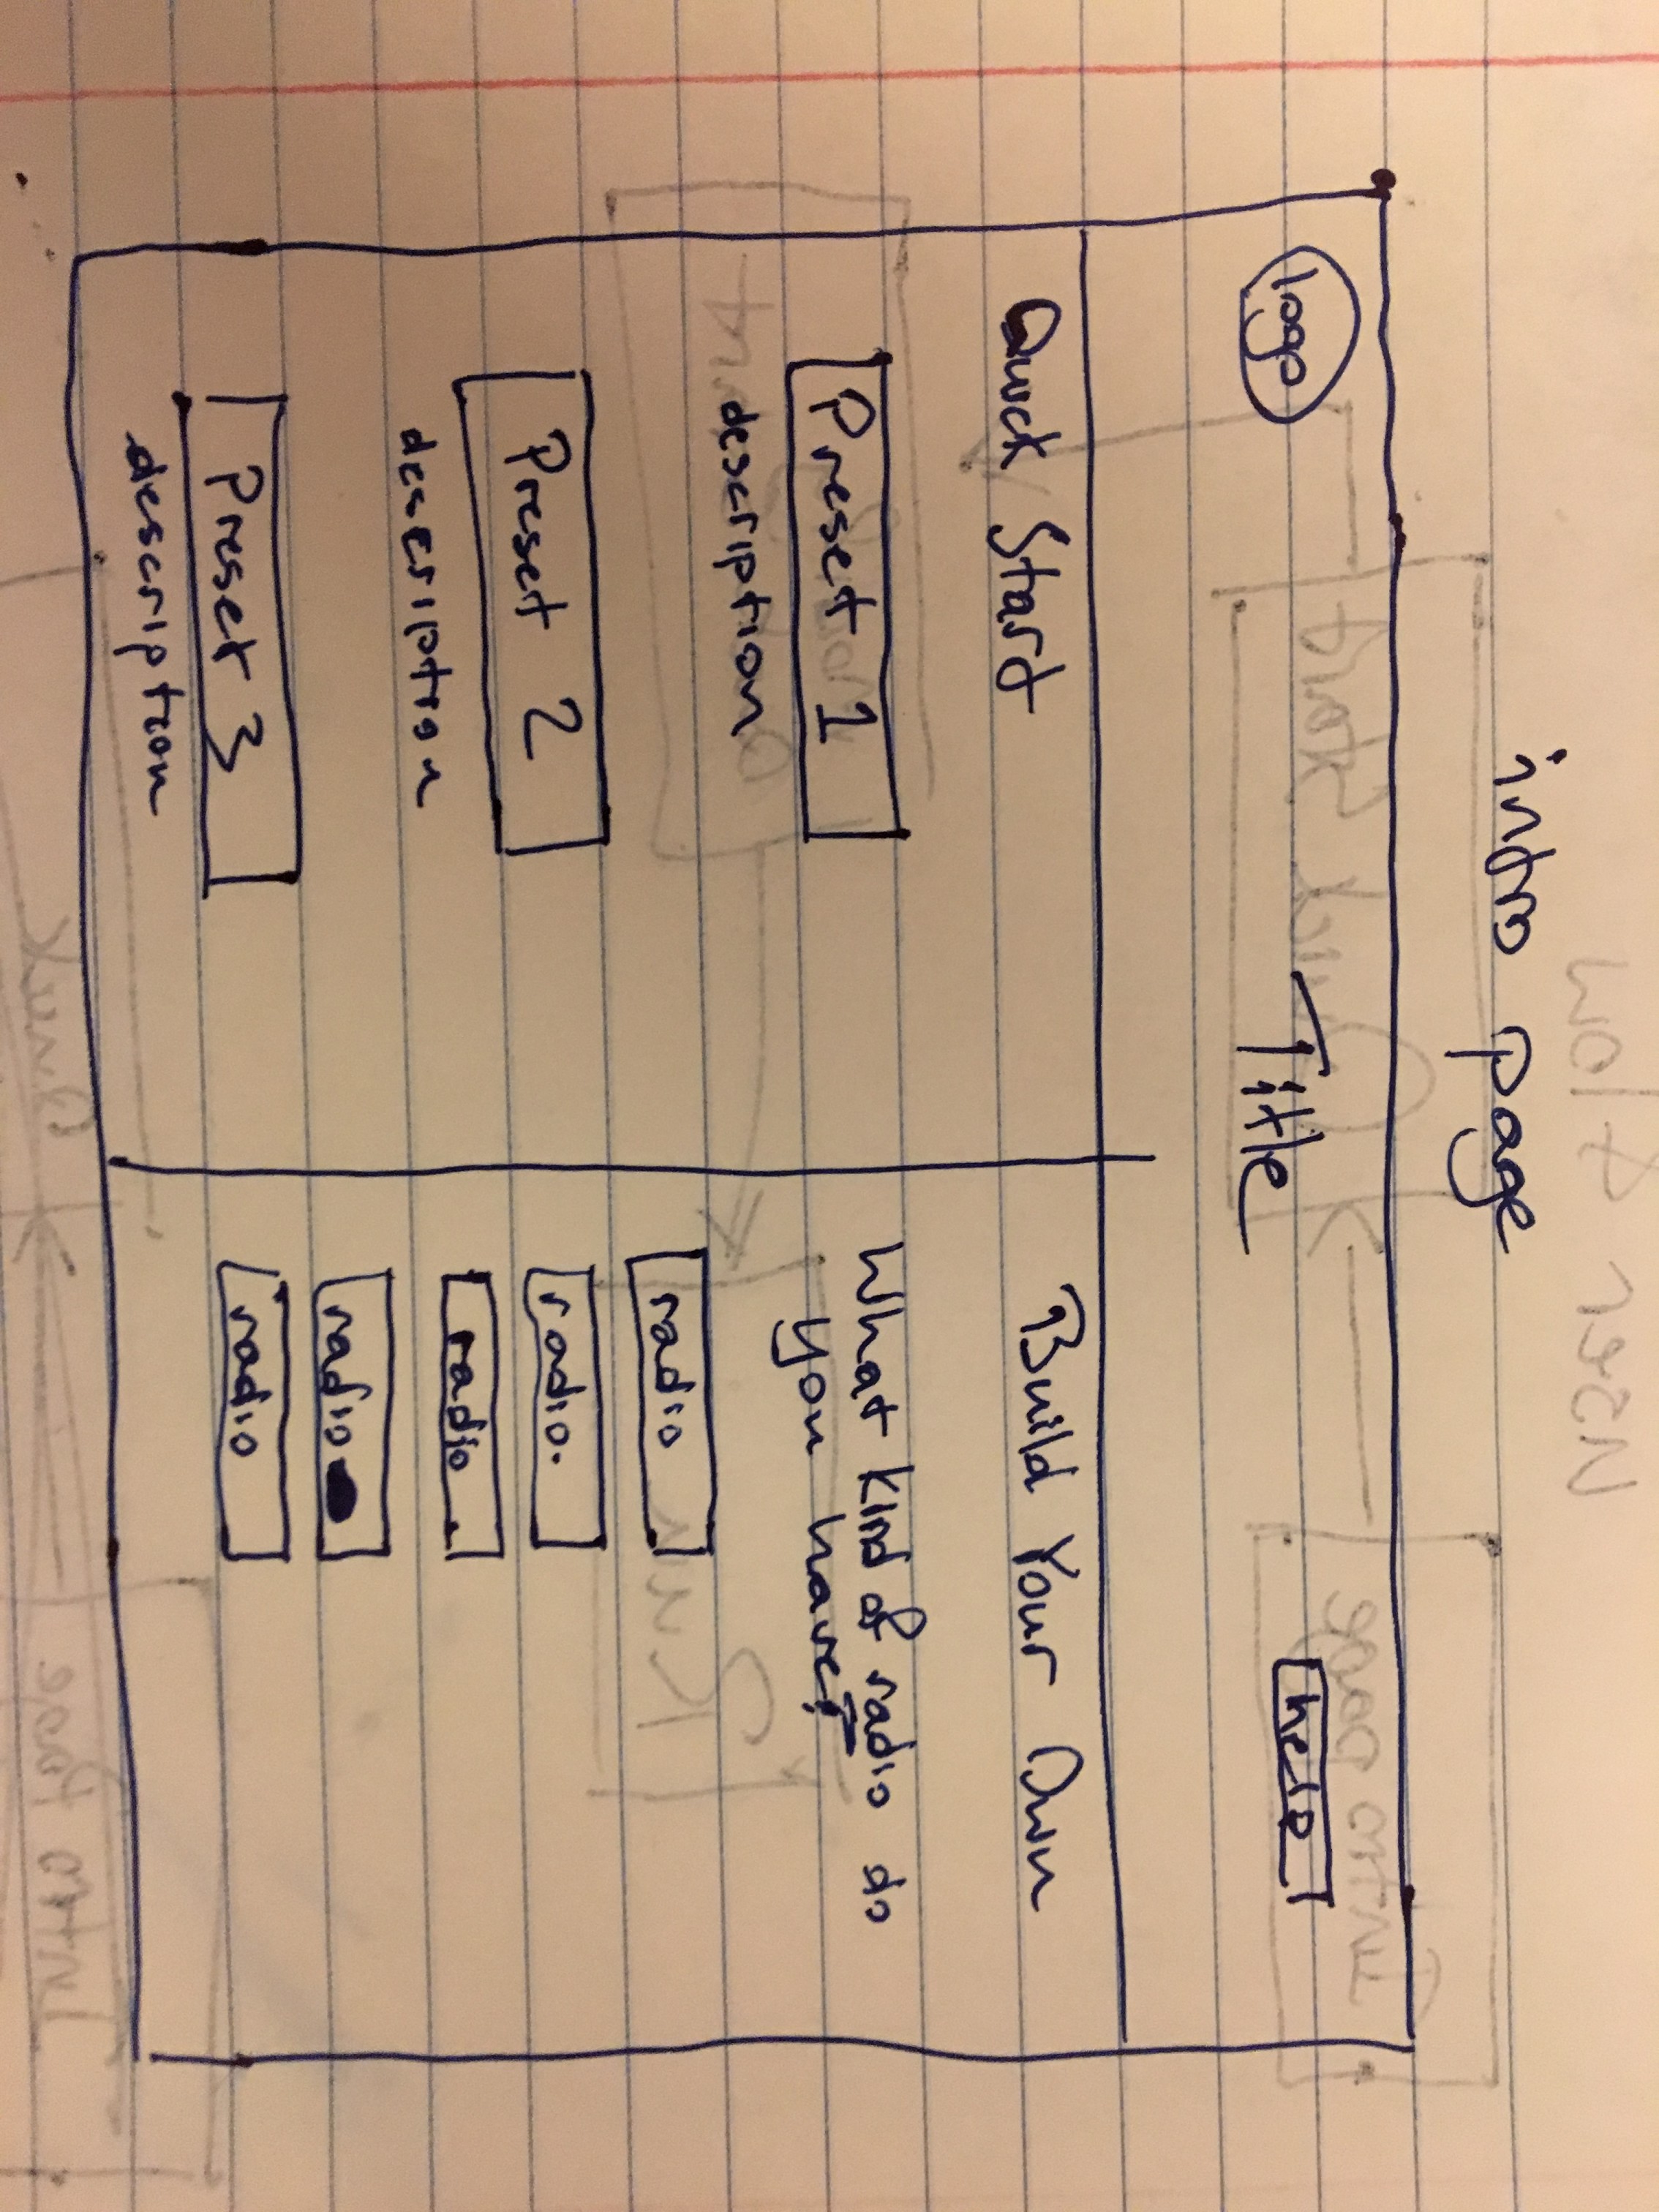 intro page
logo
Title
help
Quick Start
Preset 1
description
Preset 2
description
Preset 3
description
Build Your Own
What kind of radio do
you have?
radio
radio.
radio
radio
radio